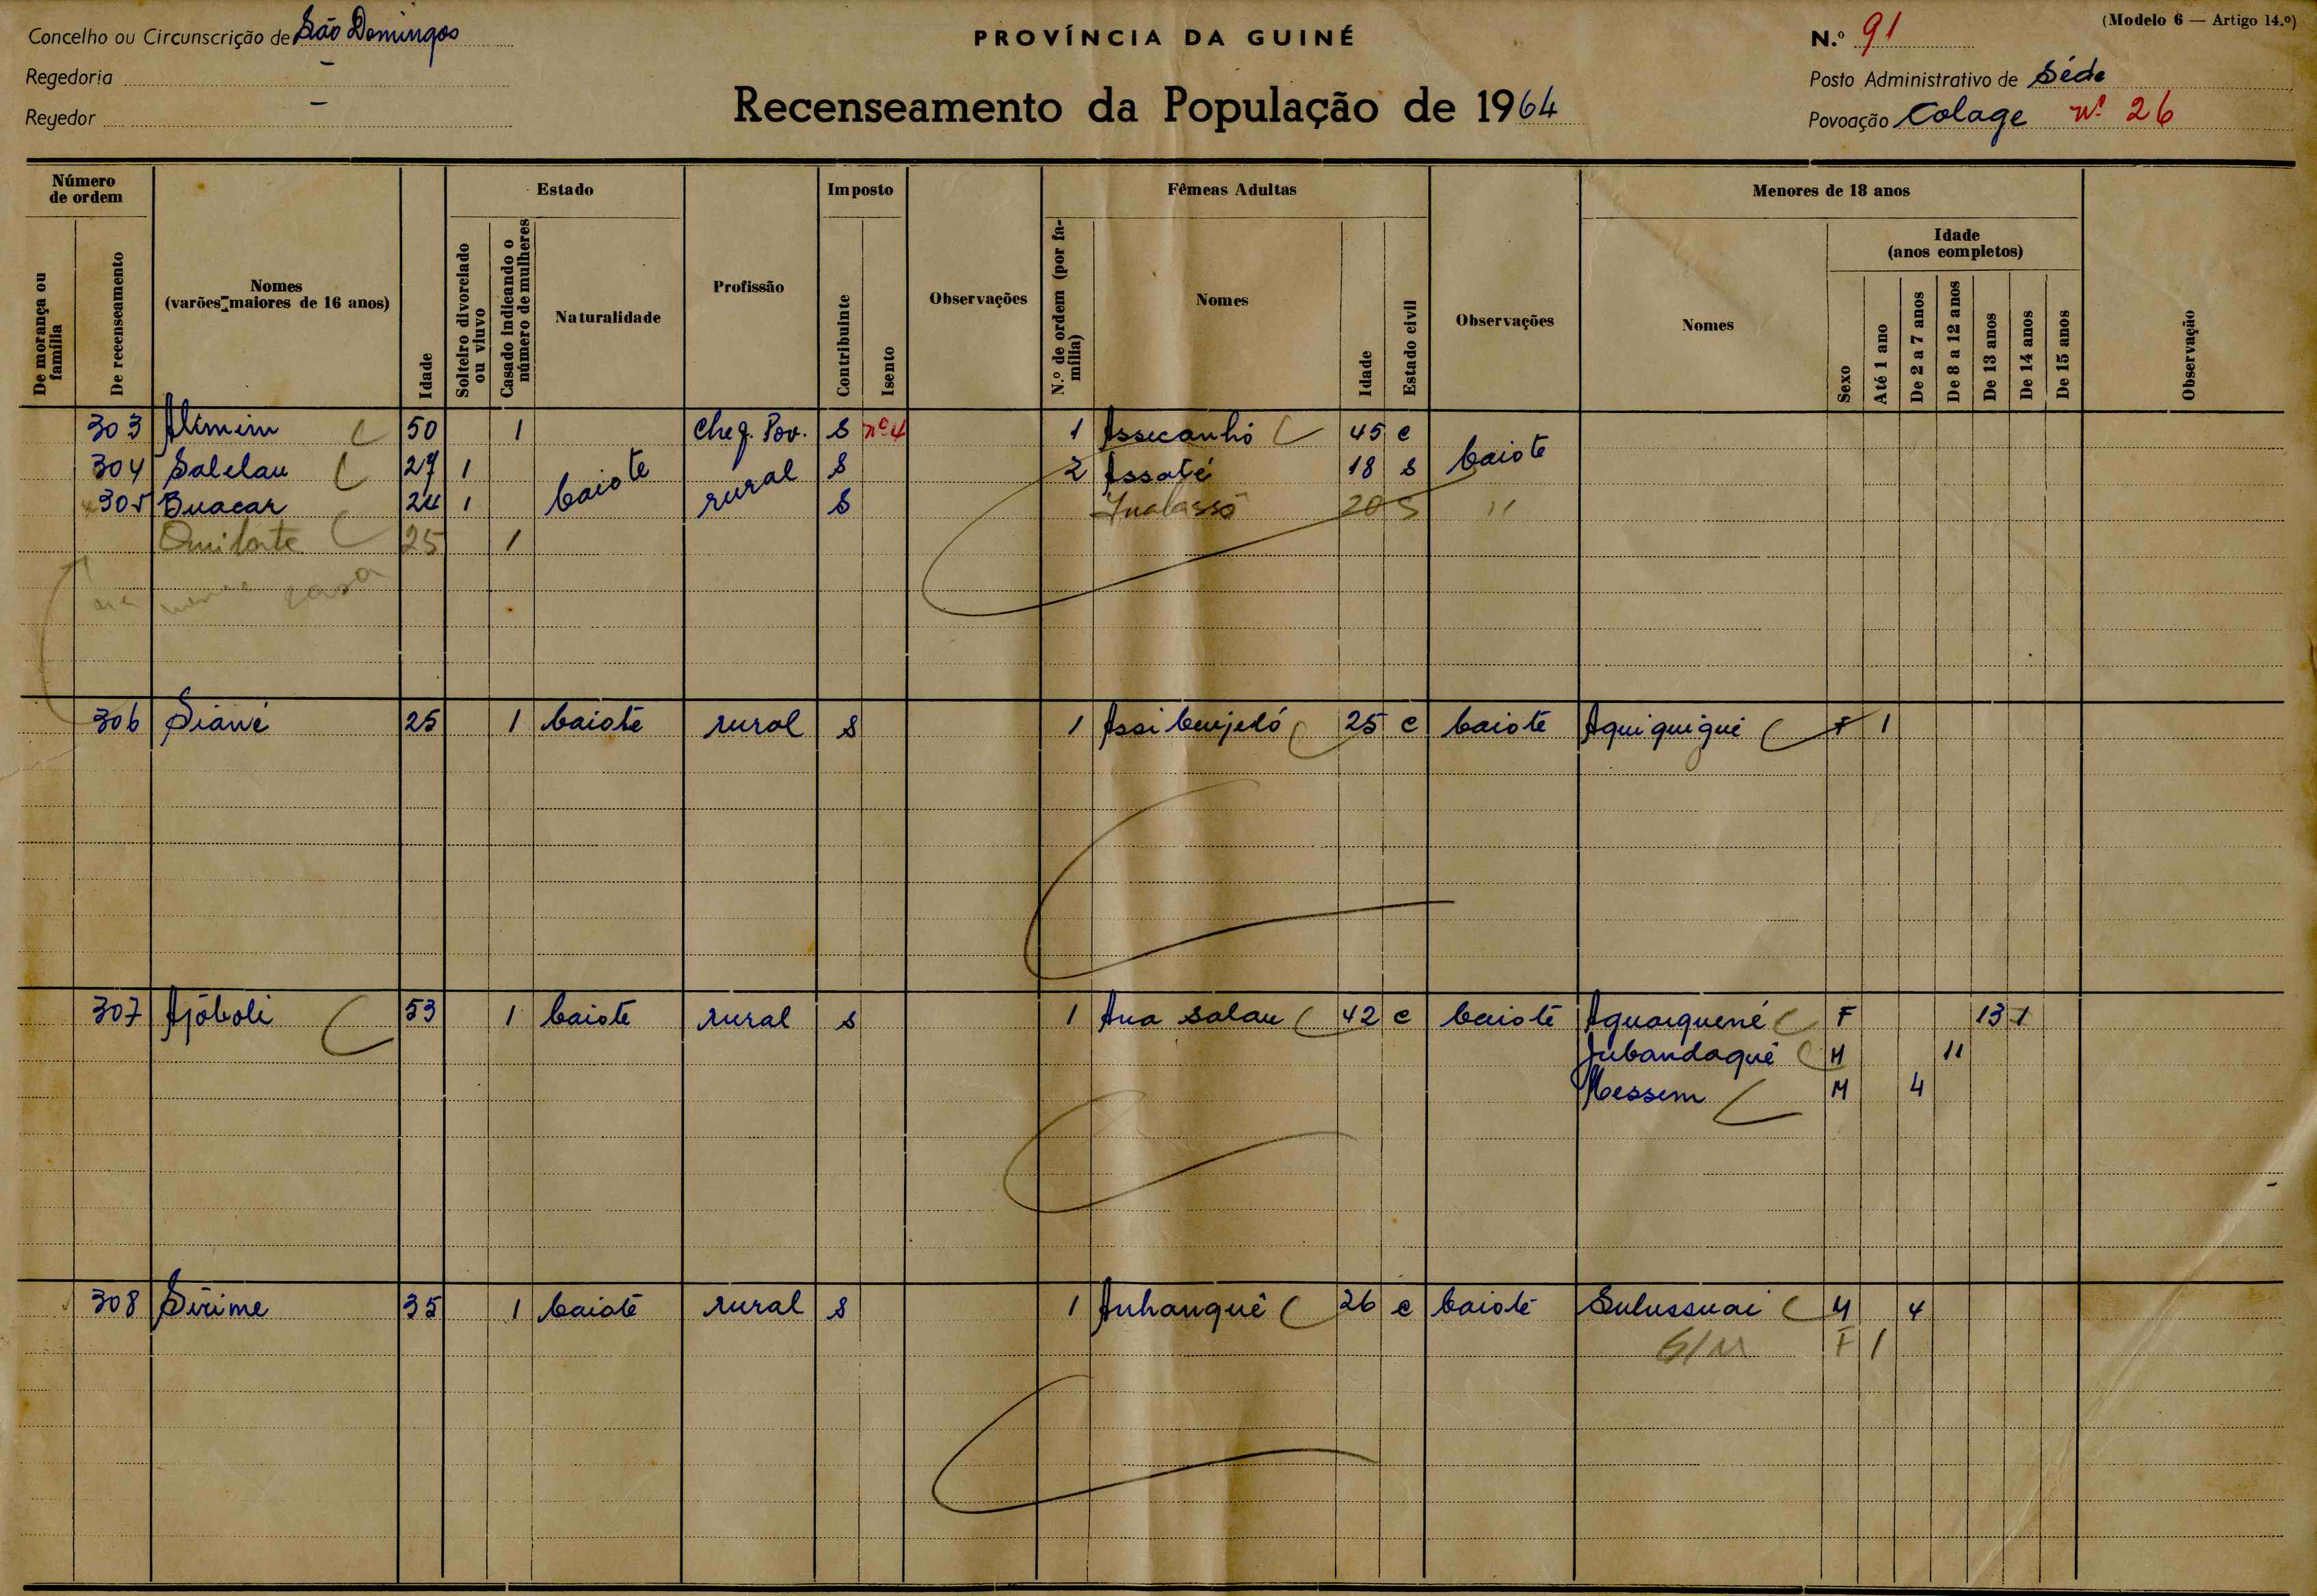 Concelho ou Circunscrição de São Domingos
Regedoria -
Reyedor -
PROVÍNCIA DA GUINÉ
Recenseamento da População de 1964
(Modelo 6 — Artigo 14.º)
N.º 91
Posto Administrativo de Séde
Povoação Colage nº 26
Número de ordem
De morança ou família
De recenseamento
Nomes (varões maiores de 16 anos)
Idade
Estado
Solteiro divorciado ou viuvo
Casado indicando o número de mulheres
Naturalidade
Profissão
Imposto
Contribuinte
Isento
Observações
Fêmeas Adultas
N.º de ordem (por família)
Nomes
Idade
Estado civil
Observações
Menores de 18 anos
Nomes
Sexo
Idade (anos completos)
Até 1 ano
De 2 a 7 anos
De 8 a 12 anos
De 13 anos
De 14 anos
De 15 anos
Observação
303 Alimim 50 1 Cheg. Pov. S nº 4 1 Assecanhó 45 c
304 Salelau 27 1 baiote rural S 2 Assaté 18 s baiote
305 Buacar 24 1 S Inalassó 20 S "
25 1
casa
306 Siané 25 1 baiote rural s 1 Assibenjeló 25 c baiote Aquiquigué F 1
307 Ajóboli 53 1 baiote rural s 1 Ana salau 42 c baiote Aguaiquené F 13 1
Jubandaquê M 11
Messem M 4
308 Sirime 35 1 baiote rural s 1 Anhanquê 26 c baiote Sulussuai M 4
S/N F 1